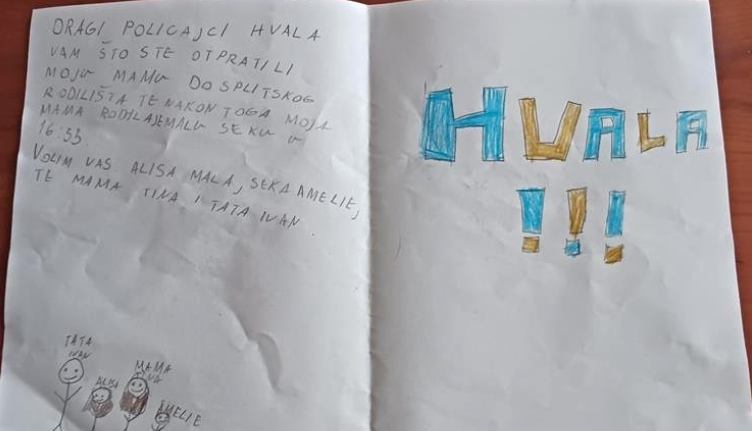 DRAGI POLICAJCI HVALA
VAM ŠTO STE OTPRATILI
MOJU MAMU DO SPLITSKOG
RODILIŠTA TE NAKON TOGA MOJA
MAMA RODILAJEMALU SEKU U
16:53
VOLIM VAS ALISA MALA, SEKA AMELIE,
TE MAMA TINA I TATA IVAN.
TATA
IVAN
ALISA
MAMA
TINA
AMELIE
HVALA
!!!